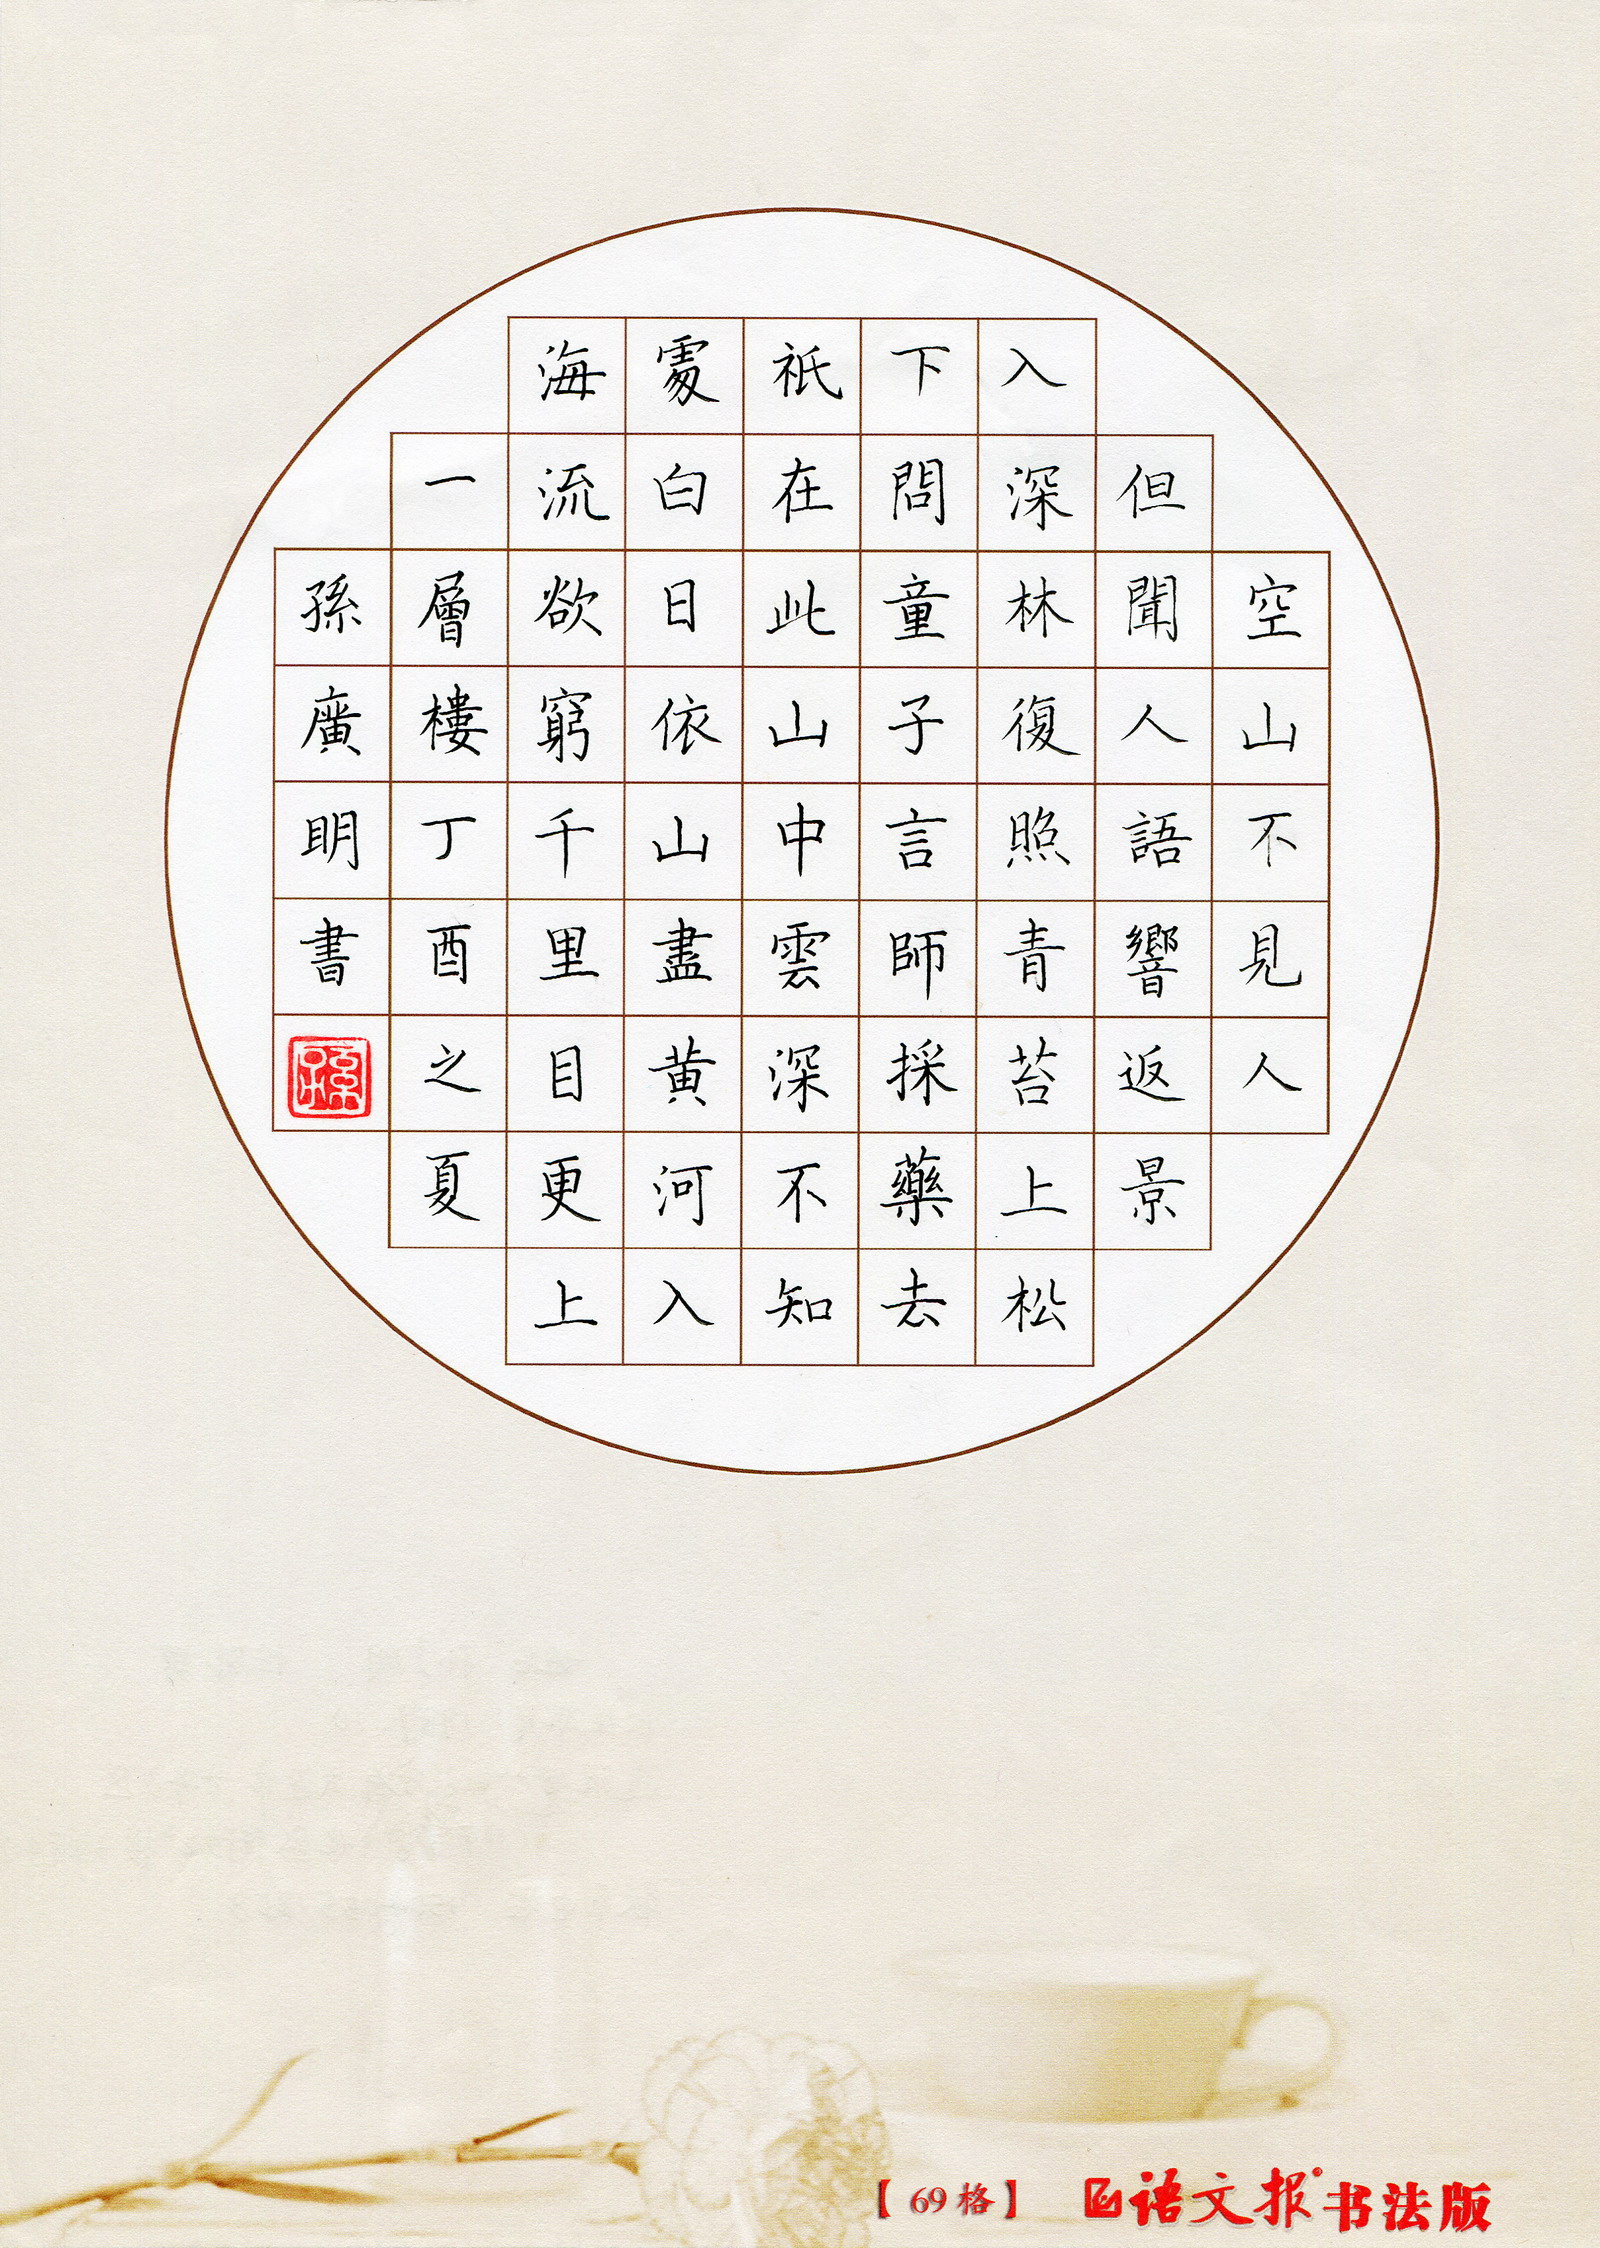 空山不見人
但聞人語響返景
入深林復照青苔上松
下問童子言師採藥去
祇在此山中雲深不知
處白日依山盡黄河入
海流欲窮千里目更上
一層樓丁酉之夏
孫廣明書
孫
【69格】
语文报 书法版